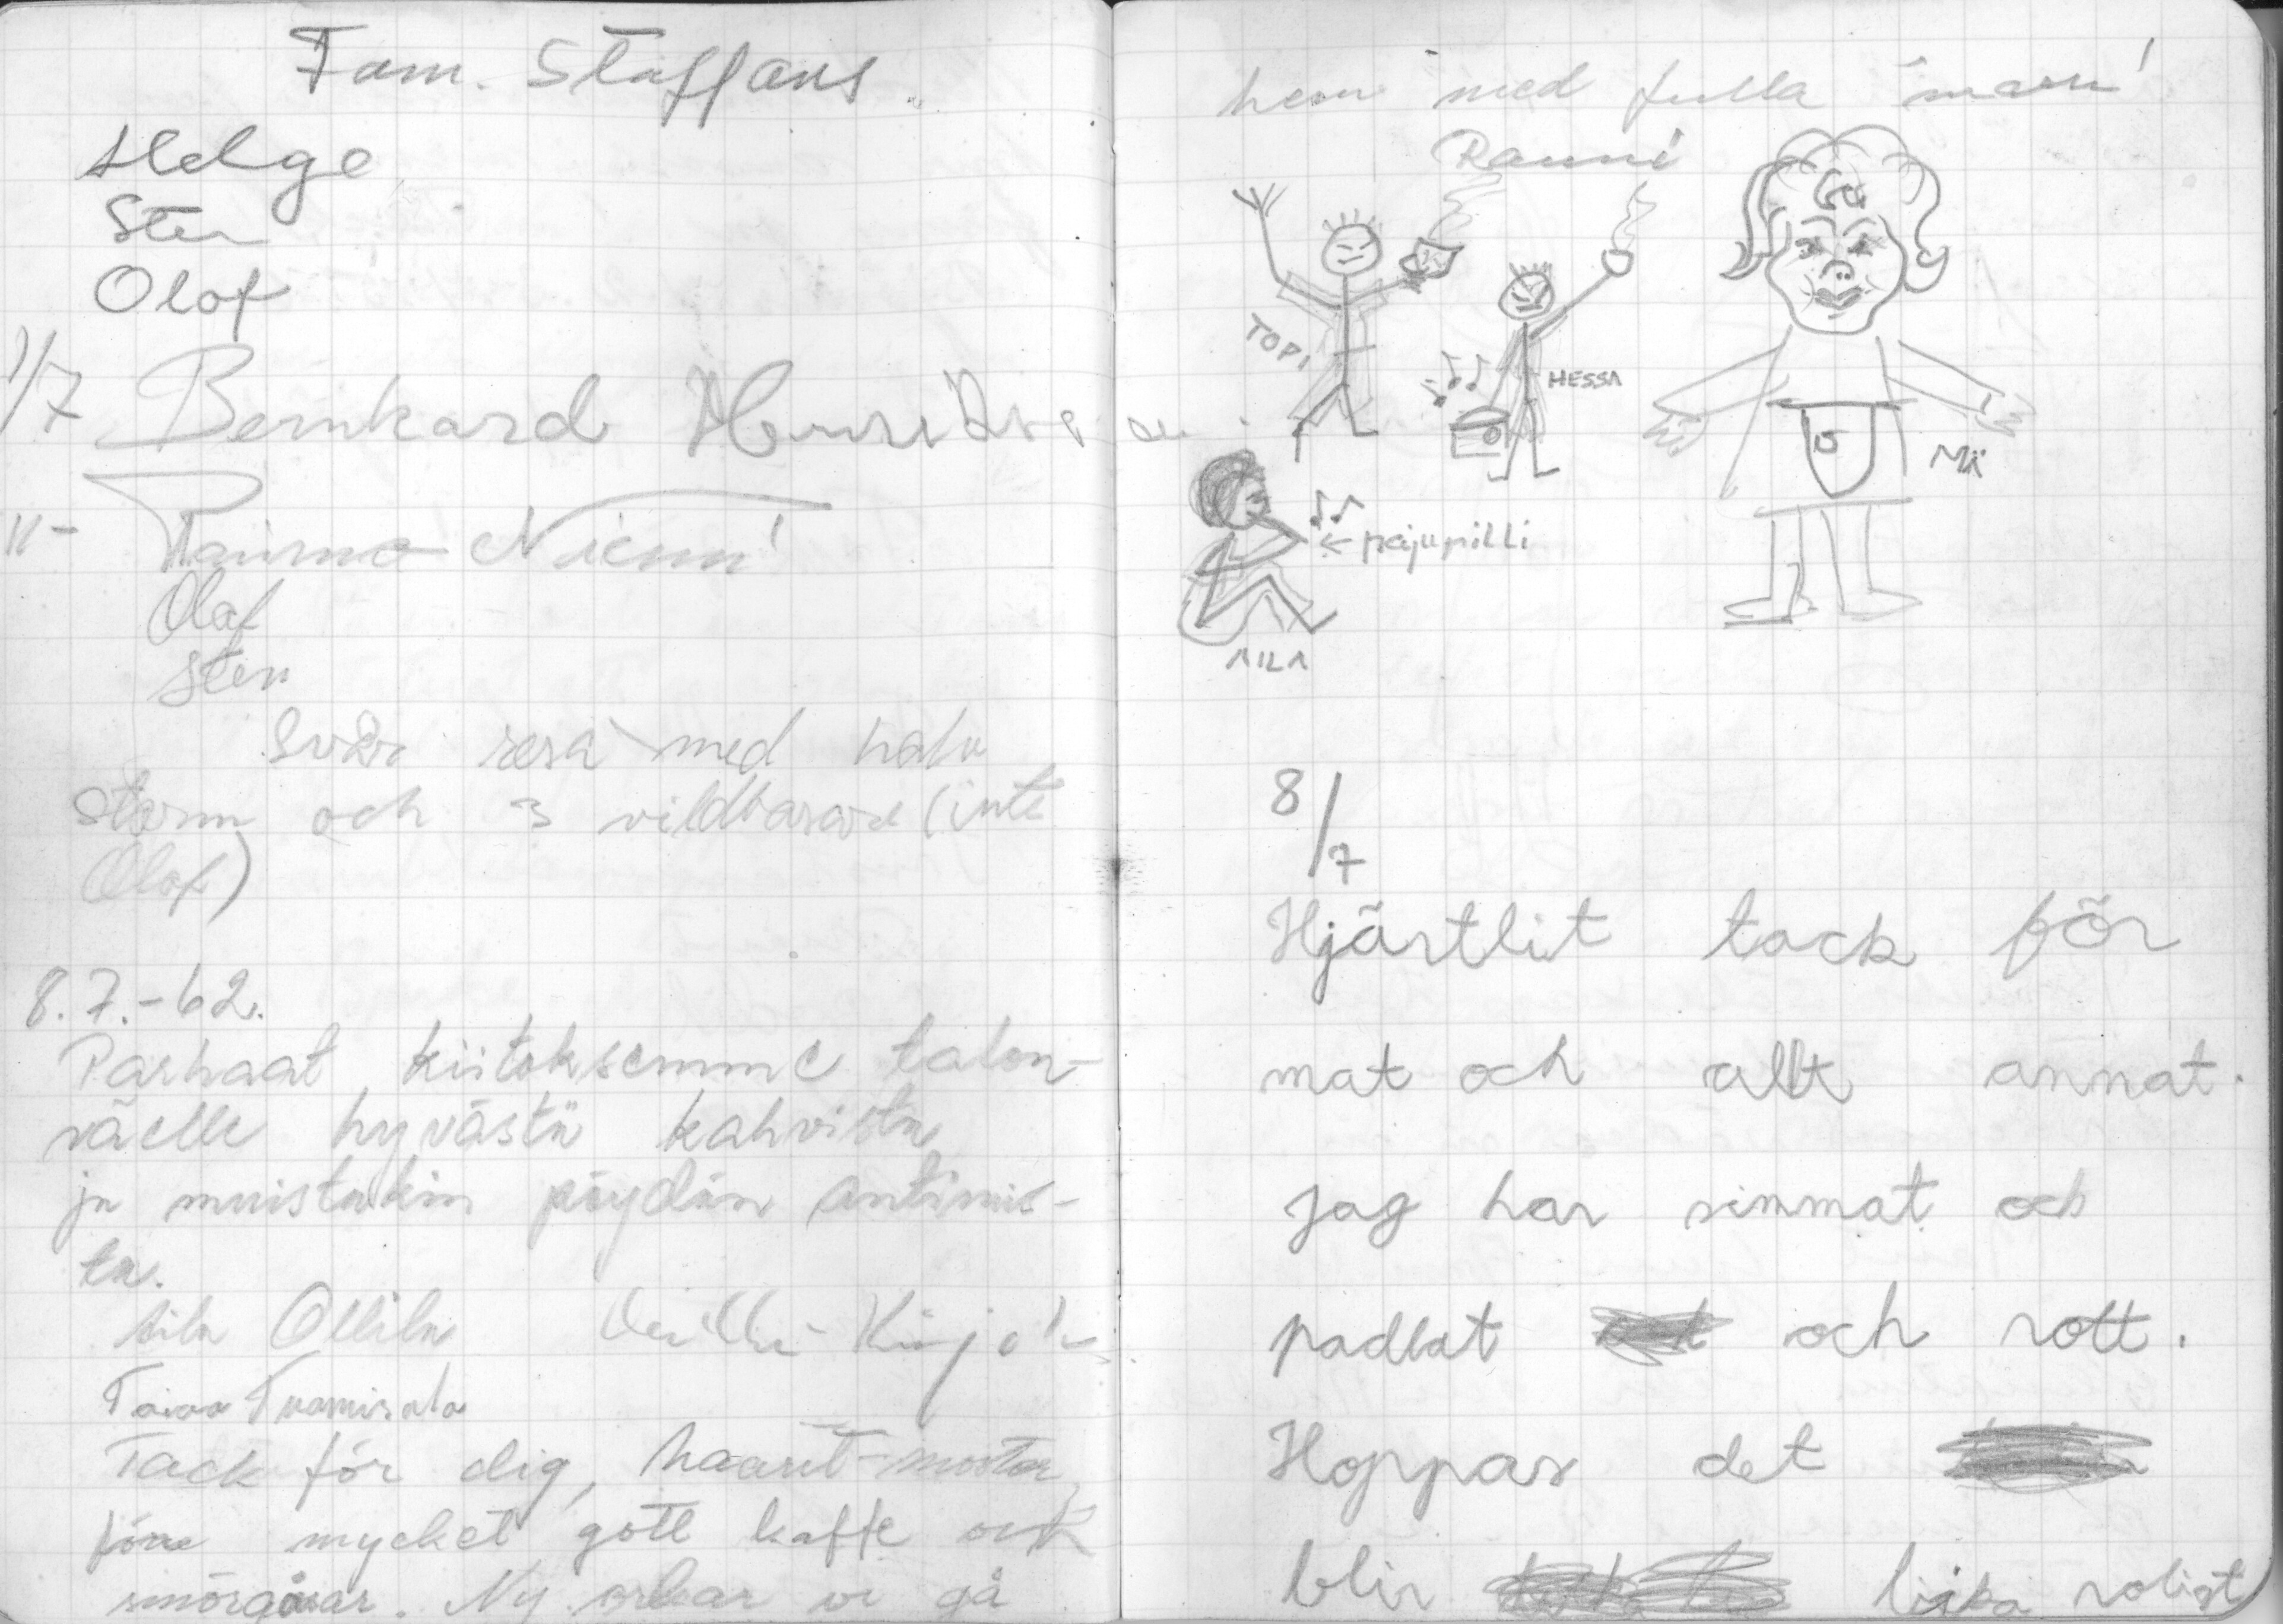 Fam. Staffans
Helge
Sten
Olof
1/7 Bernhard
-"- Raimo Niemi
Olof
Sten
Svår resa med halv
storm och 3 vildbasare (inte
Olof)
8.7.-62.
Parhaat kiitoksemme talon-
väelle hyvästä kahvista
ja muistakin pöydän antimis-
ta.
Aila Ollila
Toivo Tuomisalo
Tack för dig, Maarit-moster,
för mycket gott kaffe och
smörgåsar. Ny orkar vi gå
hem med fulla "masu"!
Rauni
TOPI
HESSA
MÄ
← pajupilli
AILA
8/7
Hjärtlit tack för
mat och allt annat.
Jag har simmat och
padlat och rott.
Hoppas det
blir lika roligt